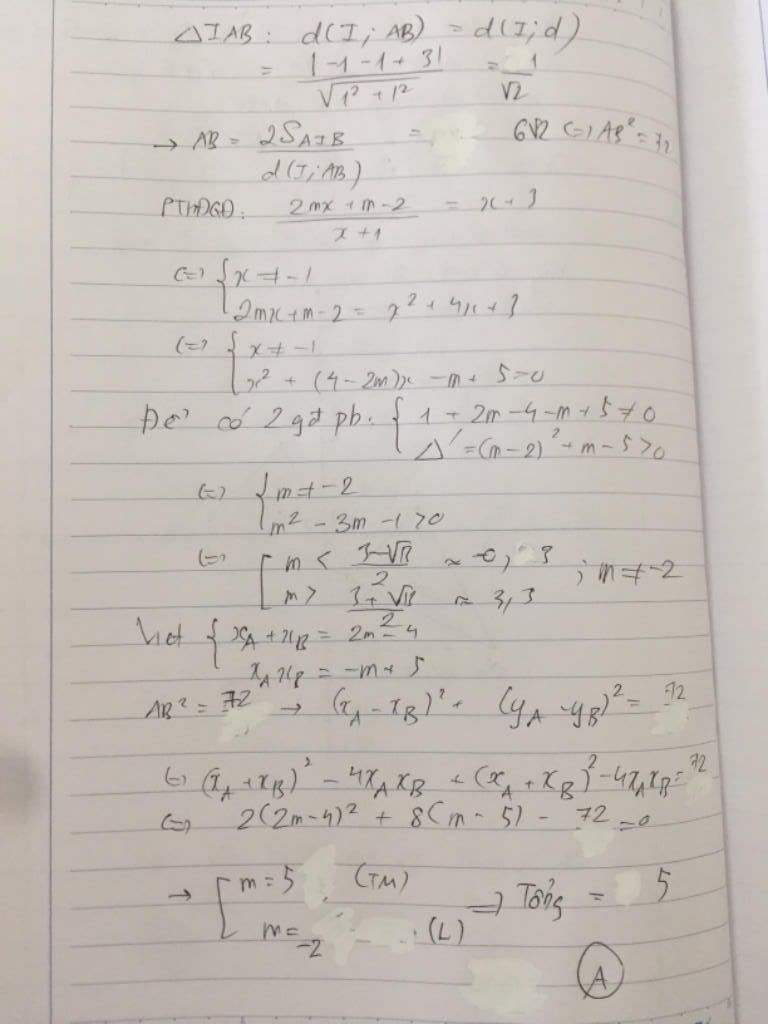 ΔIAB: d(I; AB) = d(I; d)
= |-1-1+3| / √(1² + 1²) = 1/√2
→ AB = 2S_AIB / d(I; AB) = 6√2 (=) AB² = 72
PTHĐGĐ: (2mx + m - 2) / (x + 1) = x + 3
(=) { x ≠ -1
2mx + m - 2 = x² + 4x + 3
(=) { x ≠ -1
x² + (4 - 2m)x - m + 5 = 0
Để có 2 gđ pb: { 1 + 2m - 4 - m + 5 ≠ 0
Δ' = (m - 2)² + m - 5 > 0
(=) { m ≠ -2
m² - 3m - 1 > 0
(=) [ m < (3 - √13) / 2 ≈ -0, 3 ; m ≠ -2
m > (3 + √13) / 2 ≈ 3,3
Viet { x_A + x_B = 2m - 4
x_A x_B = -m + 5
AB² = 72 → (x_A - x_B)² + (y_A - y_B)² = 72
(=) (x_A + x_B)² - 4x_A x_B + (x_A + x_B)² - 4x_A x_B = 72
(=) 2(2m - 4)² + 8(m - 5) - 72 = 0
→ [ m = 5 (TM) => Tổng = 5
m = -2 (L)
A